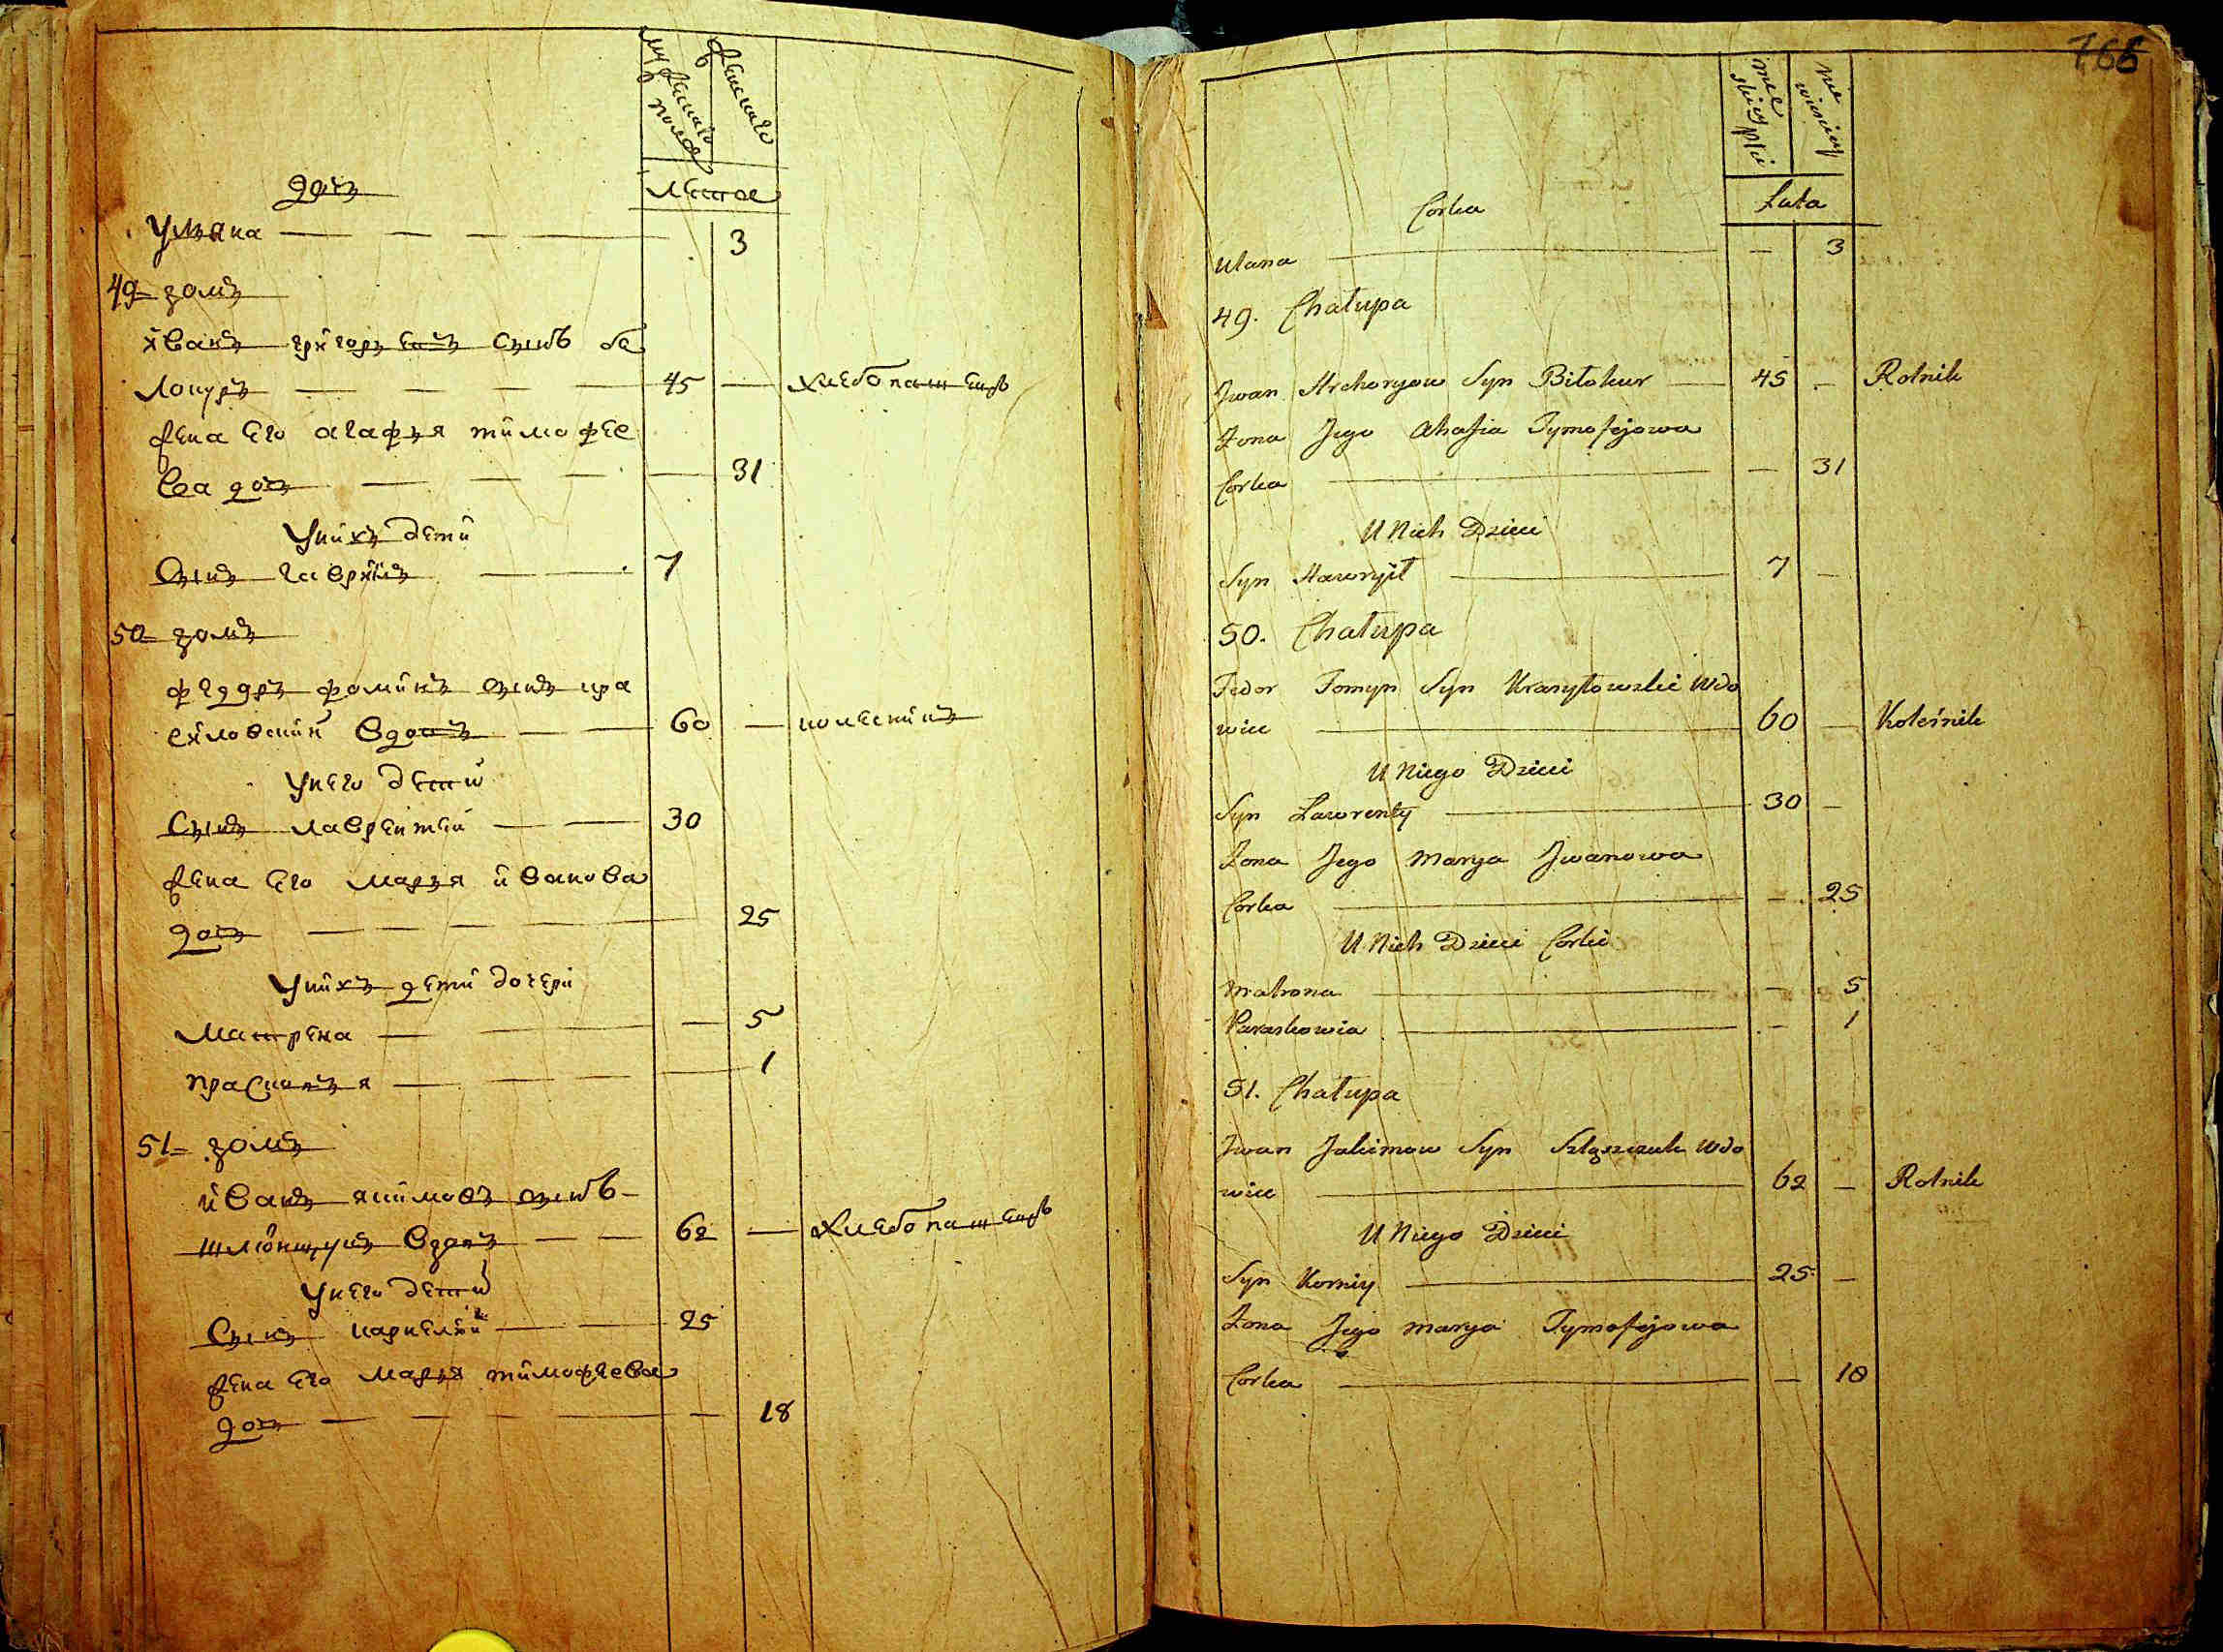 мужеска пола
женска
лета
дочь
Ульяна — — — — 3
49 = домъ
иванъ григорьевъ сынъ бѣ
локуръ — — — — 45 — хлебопашецъ
жена его агафья тимофее
ва дочь — — — — 31
У нихъ дети
Сынъ гаврїилъ — — 7
50 = домъ
федоръ фоминъ сынъ кра
силовскии вдовъ — — 60 — колесникъ
У него дети
Сынъ лаврентеи — — 30
жена его марья иванова
дочь — — — — 25
У нихъ дети дочери
Матрена — — — 5
прасковья — — — — 1
51 = домъ
иванъ якимовъ сынъ —
шлюнщукъ вдовъ — — 62 — хлебопашецъ
У него дети
Сынъ карнелїи — — 25
жена его марья тимофеева
дочь — — — — — 18
766
Corka
Lata
Ulana — — 3
49. Chałupa
Jwan Hrehoryow Syn Biłokur — 45 — Rolnik
Zona Jego Ahafia Tymofejowa
Corka — — 31
U Nich Dzieci
Syn Hawryił — 7 —
50. Chałupa
Fedor Fomyn Syn Krasyłowski Wdo
wiec — 60 — Kołeśnik
U Niego Dzieci
Syn Lawrenty — 30 —
Zona Jego Marya Jwanowa
Corka — — 25
U Nich Dzieci Corki
Matrona — — 5
Paraskowia — — 1
51. Chałupa
Jwan Jakimow Syn Wdo
wiec — 62 — Rolnik
U Niego Dzieci
Syn Korniy — 25 —
Zona Jego Marya Tymofejowa
Corka — — 18